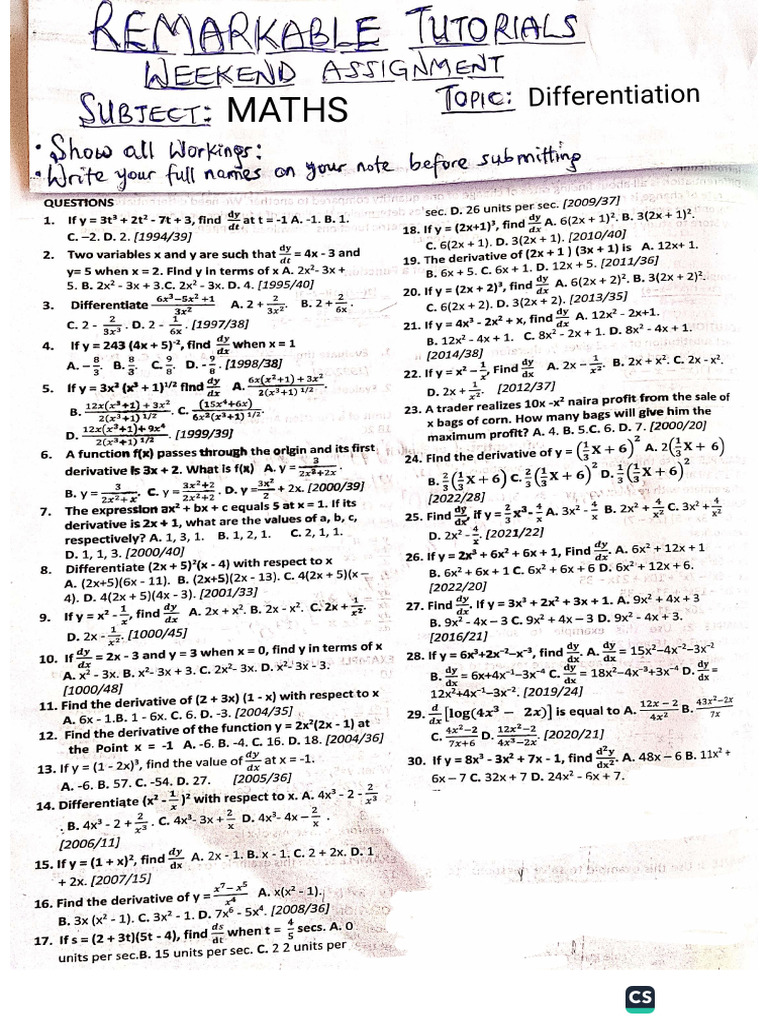 REMARKABLE TUTORIALS
WEEKEND ASSIGNMENT
SUBJECT: MATHS TOPIC: Differentiation
• Show all Workings:
• Write your full names on your note before submitting
QUESTIONS
1. If y = 3t³ + 2t² - 7t + 3, find dy/dt at t = -1 A. -1. B. 1.
C. –2. D. 2. [1994/39]
2. Two variables x and y are such that dy/dt = 4x - 3 and
y= 5 when x = 2. Find y in terms of x A. 2x²- 3x +
5. B. 2x² - 3x + 3.C. 2x² - 3x. D. 4. [1995/40]
3. Differentiate (6x³−5x²+1)/3x² A. 2 + 2/3x². B. 2 + 2/6x
C. 2 - 2/3x³. D. 2 - 1/6x. [1997/38]
4. If y = 243 (4x + 5)⁻², find dy/dx when x = 1
A. −8/3. B. 8/3. C. 9/8. D. -9/8. [1998/38]
5. If y = 3x³ (x³ + 1)^1/2 find dy/dx A. (6x(x²+1) + 3x²)/(2(x³+1)^1/2)
B. (12x(x³+1) + 3x²)/(2(x³+1)^1/2). C. (15x⁴+6x)/(6x²(x³+1)^1/2)
D. (12x(x³+1)+ 9x⁴)/(2(x³+1)^1/2). [1999/39]
6. A function f(x) passes through the origin and its first
derivative is 3x + 2. What is f(x) A. y = 3/(2x²+2x).
B. y = 3/(2x²+x). C. y = (3x²+2)/(2x²+2). D. y = 3x²/2 + 2x. [2000/39]
7. The expression ax² + bx + c equals 5 at x = 1. If its
derivative is 2x + 1, what are the values of a, b, c,
respectively? A. 1, 3, 1. B. 1, 2, 1. C. 2, 1, 1.
D. 1, 1, 3. [2000/40]
8. Differentiate (2x + 5)²(x - 4) with respect to x
A. (2x+5)(6x - 11). B. (2x+5)(2x - 13). C. 4(2x + 5)(x –
4). D. 4(2x + 5)(4x - 3). [2001/33]
9. If y = x² - 1/x, find dy/dx A. 2x + x². B. 2x - x². C. 2x + 1/x².
D. 2x - 1/x². [1000/45]
10. If dy/dx = 2x - 3 and y = 3 when x = 0, find y in terms of x
A. x² - 3x. B. x²- 3x + 3. C. 2x²- 3x. D. x²- 3x - 3.
[1000/48]
11. Find the derivative of (2 + 3x) (1 - x) with respect to x
A. 6x - 1.B. 1 - 6x. C. 6. D. -3. [2004/35]
12. Find the derivative of the function y = 2x²(2x - 1) at
the Point x = -1 A. -6. B. -4. C. 16. D. 18. [2004/36]
13. If y = (1 - 2x)³, find the value of dy/dx at x = -1.
A. -6. B. 57. C. -54. D. 27. [2005/36]
14. Differentiate (x² - 1/x)² with respect to x. A. 4x³ - 2 - 2/x³
. B. 4x³ - 2 + 2/x³. C. 4x³- 3x + 2/x. D. 4x³- 4x − 2/x.
[2006/11]
15. If y = (1 + x)², find dy/dx A. 2x - 1. B. x - 1. C. 2 + 2x. D. 1
+ 2x. [2007/15]
16. Find the derivative of y = (x⁷− x⁵)/x⁴ A. x(x² - 1).
B. 3x (x² - 1). C. 3x² - 1. D. 7x⁶ - 5x⁴. [2008/36]
17. If s = (2 + 3t)(5t - 4), find ds/dt when t = 4/5 secs. A. 0
units per sec.B. 15 units per sec. C. 2 2 units per
sec. D. 26 units per sec. [2009/37]
18. If y = (2x+1)³, find dy/dx A. 6(2x + 1)². B. 3(2x + 1)².
C. 6(2x + 1). D. 3(2x + 1). [2010/40]
19. The derivative of (2x + 1 ) (3x + 1) is A. 12x+ 1.
B. 6x + 5. C. 6x + 1. D. 12x + 5. [2011/36]
20. If y = (2x + 2)³, find dy/dx A. 6(2x + 2)². B. 3(2x + 2)².
C. 6(2x + 2). D. 3(2x + 2). [2013/35]
21. If y = 4x³ - 2x² + x, find dy/dx A. 12x² - 2x+1.
B. 12x² - 4x + 1. C. 8x² - 2x + 1. D. 8x² - 4x + 1.
[2014/38]
22. If y = x² − 1/x, Find dy/dx A. 2x − 1/x². B. 2x + x². C. 2x - x².
D. 2x + 1/x². [2012/37]
23. A trader realizes 10x -x² naira profit from the sale of
x bags of corn. How many bags will give him the
maximum profit? A. 4. B. 5.C. 6. D. 7. [2000/20]
24. Find the derivative of y = (1/3 X + 6)² A. 2(1/3 X + 6)
B. 2/3(1/3 X + 6) C. 2/3(1/3 X + 6)² D. 1/3(1/3 X + 6)²
[2022/28]
25. Find dy/dx, if y = 2/3 x³- 4/x A. 3x² - 4/x B. 2x² + 4/x² C. 3x² + 4/x²
D. 2x² - 4/x. [2021/22]
26. If y = 2x³ + 6x² + 6x + 1, Find dy/dx. A. 6x² + 12x + 1
B. 6x² + 6x + 1 C. 6x² + 6x + 6 D. 6x² + 12x + 6.
[2022/20]
27. Find dy/dx. If y = 3x³ + 2x² + 3x + 1. A. 9x² + 4x + 3
B. 9x² - 4x – 3 C. 9x² + 4x – 3 D. 9x² - 4x + 3.
[2016/21]
28. If y = 6x³+2x⁻²–x⁻³, find dy/dx. A. dy/dx = 15x²–4x⁻²–3x⁻²
B. dy/dx = 6x+4x⁻¹–3x⁻⁴ C. dy/dx = 18x²–4x⁻³+3x⁻⁴ D. dy/dx =
12x²+4x⁻¹–3x⁻². [2019/24]
29. d/dx [log(4x³ − 2x)] is equal to A. (12x − 2)/4x² B. (43x²−2x)/7x
C. (4x²−2)/(7x+6) D. (12x²−2)/(4x³−2x). [2020/21]
30. If y = 8x³ - 3x² + 7x - 1, find d²y/dx². A. 48x – 6 B. 11x² +
6x – 7 C. 32x + 7 D. 24x² - 6x + 7.
CS